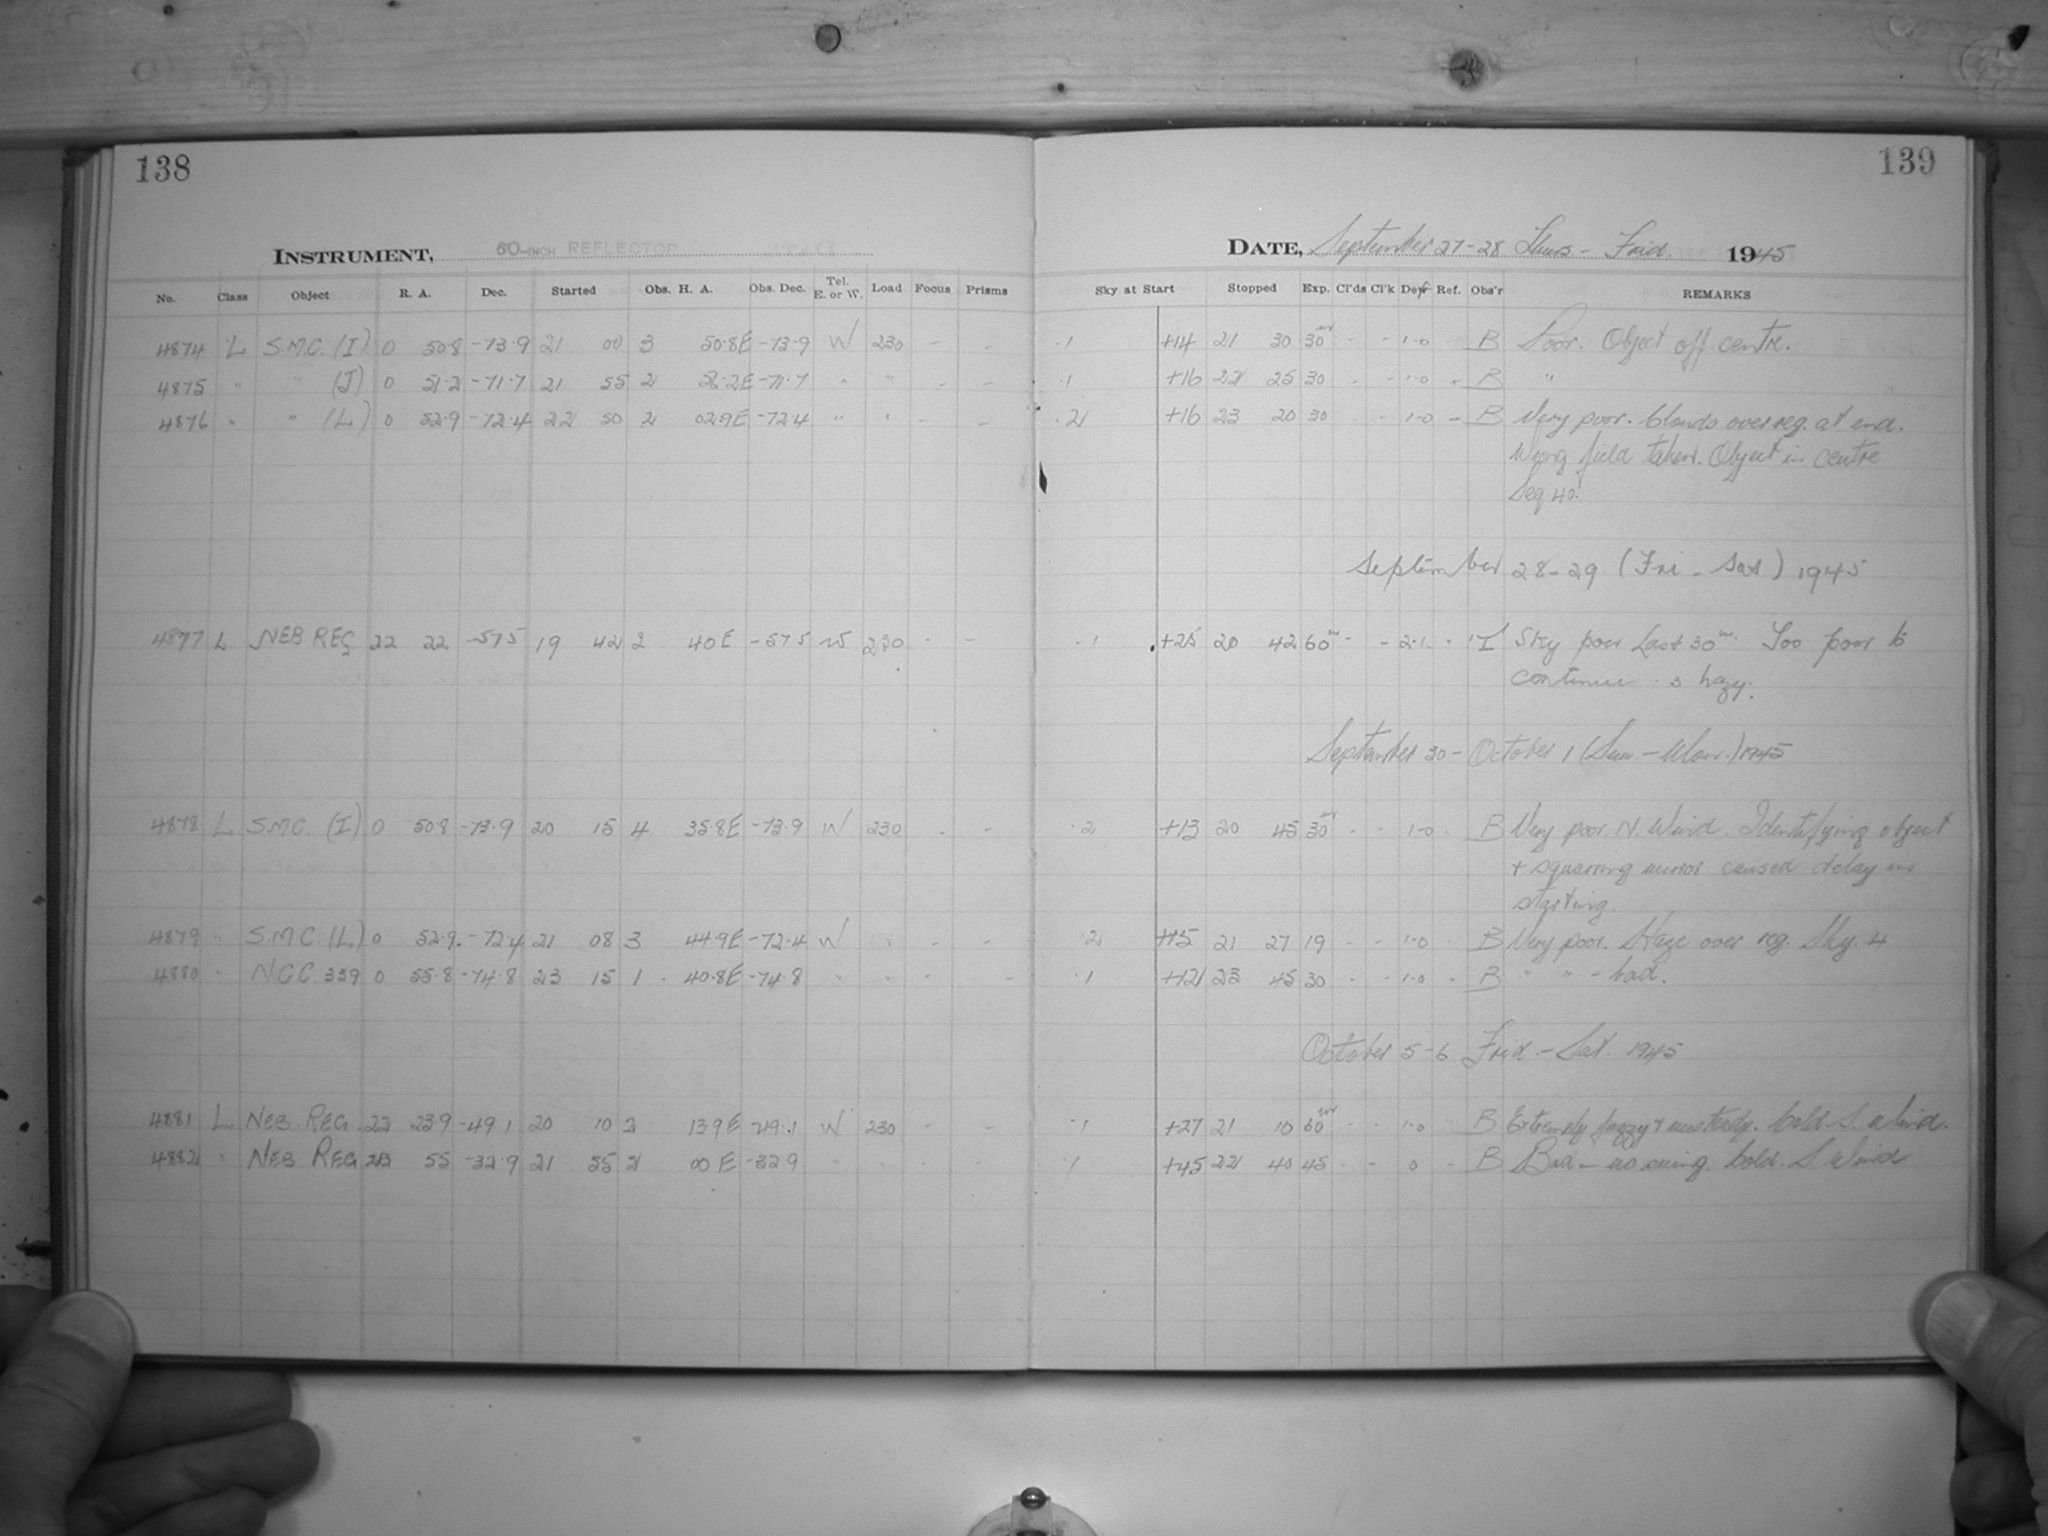 138
139
INSTRUMENT, 60-INCH REFLECTOR
DATE, September 27-28 Thurs - Frid. 1945
No. Class Object R. A. Dec. Started Obs. H. A. Obs. Dec. Tel. E. or W. Load Focus Prisms Sky at Start Stopped Exp. Cl'ds Cl'k Dew Ref. Obs'r REMARKS
4874 L S.M.C. (I) 0 50.8 -73.9 21 00 3 50.8E -73.9 W 230 - - .1 +14 21 30 30m - - 1.0 - B Poor. Object off centre.
4875 " " (J) 0 51.2 -71.7 21 55 2 56.2E -71.7 " " - - .1 +16 22 25 30 - - 1.0 - B "
4876 " " (L) 0 52.9 -72.4 22 50 2 02.9E -72.4 " " - - .2 +16 23 20 30 - - 1.0 - B Very poor. Clouds over reg. at end.
Wrong field taken. Object in centre
Seq 40!
September 28-29 (Fri - Sat) 1945
4877 L NEB REG 22 22 -57 5 19 42 2 40 E -57 5 W 230 - - .1 +25 20 42 60m - - 2.1 - Sky poor last 30m. Too poor to
continue . 3 hazy.
September 30 - October 1 (Sun. - Mon.) 1945
4878 L S.M.C. (I) 0 50.8 -73.9 20 15 4 35.8E -73.9 W 230 - - .2 +13 20 45 30m - - 1.0 - B Very poor. N. Wind. Identifying object
+ squaring mirror caused delay in
starting.
4879 " S.M.C (L) 0 52.9 -72.4 21 08 3 44.9E -72.4 W " - - .2 +15 21 27 19 - - 1.0 B Very poor. Haze over reg. Sky 4
4880 " NGC 339 0 55.8 -74.8 23 15 1 40.8E -74.8 " " - - .1 +12 23 45 30 - - 1.0 - B " " - bad.
October 5-6 Frid - Sat. 1945
4881 L NEB. REG. 22 23.9 -49.1 20 10 2 13.9 E -49.1 W 230 - - .1 +27 21 10 60m - - 1.0 B Extremely fuzzy + unsteady. Cold S. Wind.
4882 " NEB REG 23 55 -32.9 21 55 2 00 E -32.9 " " - - .1 +45 22 40 45 - - 0 - B Bad - no seeing. Cold. S. Wind